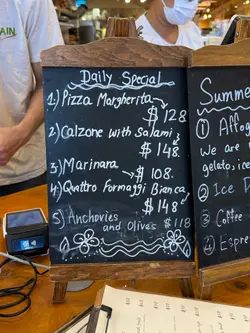 AIN
Daily Special
1) Pizza Margherita
$ 128
2) Calzone with Salami
$ 148.
3) Marinara
$ 108.
4) Quattro Formaggi Bianca
$ 148
5) Anchovies
and Olives $118
Summe
① Affog
We are
gelato, ice
② Ice D
③ Coffee
④ Espre